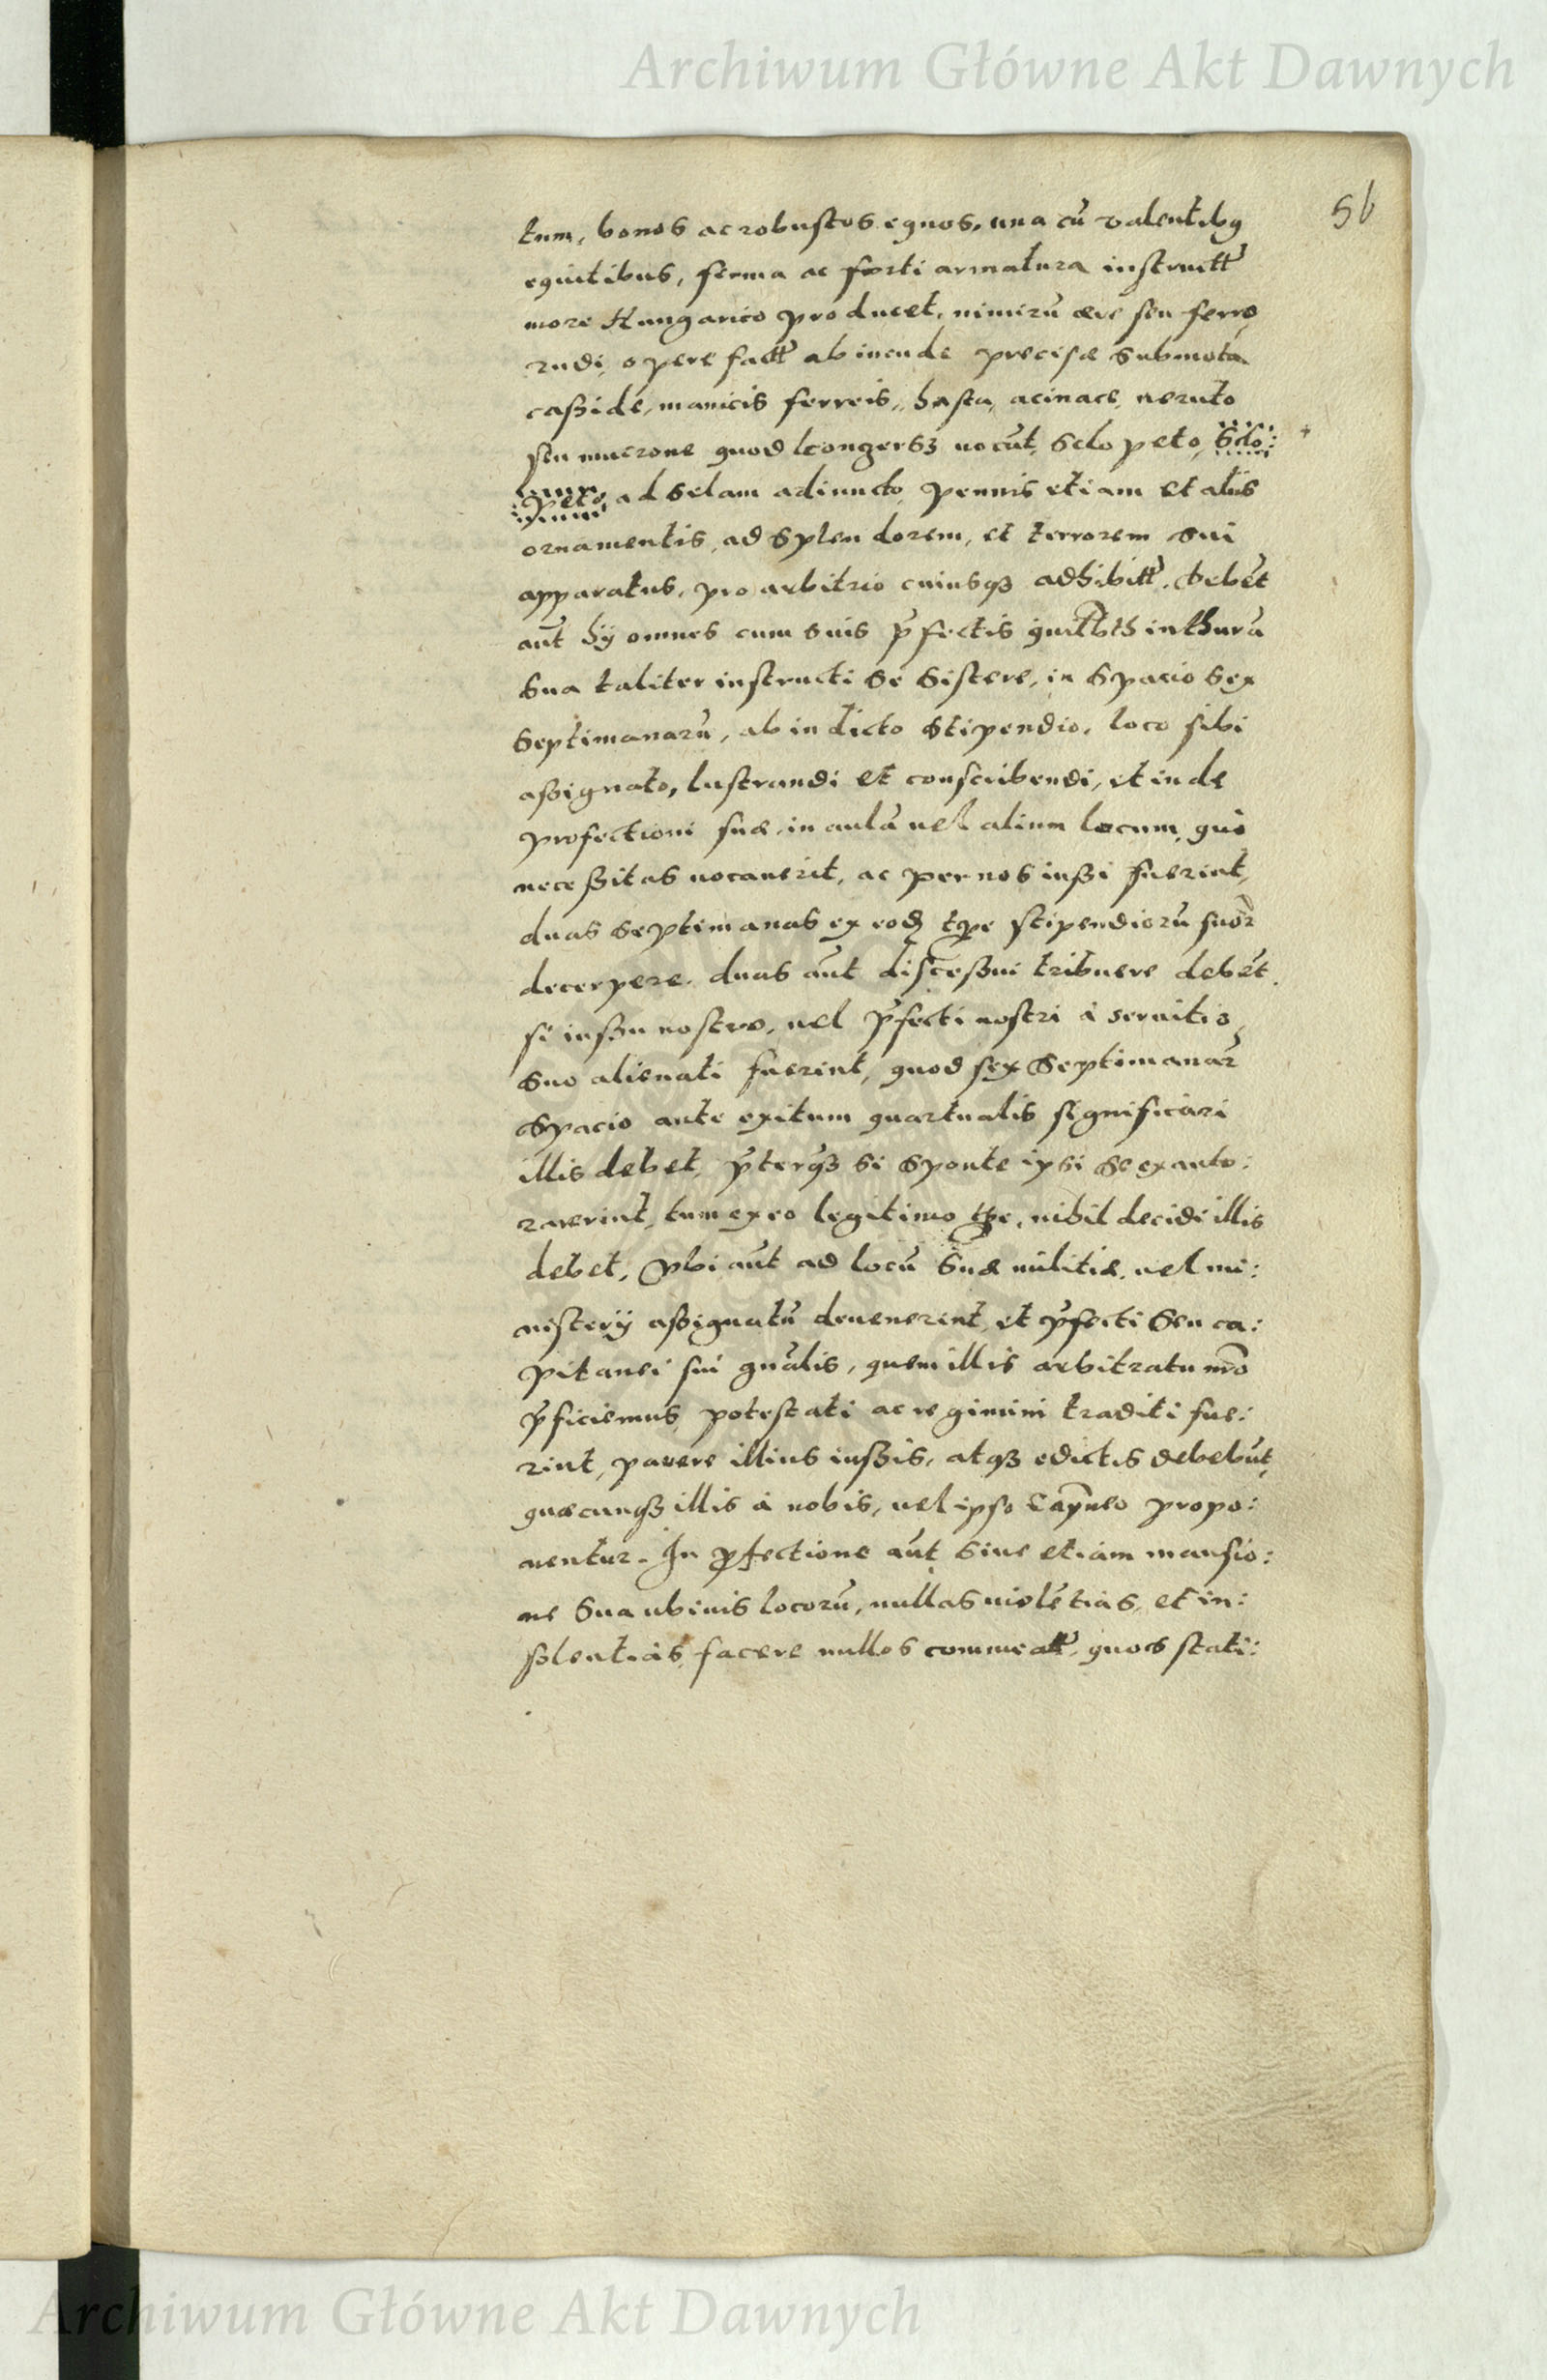 Archiwum Główne Akt Dawnych
56
tum, bonos ac robustos equos, una cū valentibꝫ
equitibus, firma ac forti armatura instructꝭ
more Hungarico producet, nimirū ære seu ferro
rudi, opere factꝭ ab incude precisæ submota
casside, manicis ferreis, hasta, acinace, veruto
seu mucrone quod konczersz uocāt, sclopeto, sclo:
peto, ad selam adiuncto, pennis etiam et aliis
ornamentis, ad splendorem, et terrorem sui
apparatus, pro arbitrio cuiusqꝫ adhibitꝭ. Debēt
aūt hÿ omnes cum suis p̄fectis in thurā
sua taliter instructi se sistere, in spacio sex
septimanarū, ab indicto stipendio, loco sibi
assignato, lustrandi et conscribendi, et inde
profectioni suæ, in aulā uel alium locum, quò
necessitas uocauerit, ac per nos iussi fuerint,
duas septimanas ex eodē tp̄e stipendiorū suoꝝ
decerpere, duas aūt discessui tribuere debēt.
si iussu nostro, uel p̄fecti nostri à seruitio
suo alienati fuerint, quod sex septimanaꝝ
spacio ante exitum quartualis significari
illis debet, p̄terqꝫ si sponte ipsi se exauto:
rauerint, tum ex eo legitimo tp̄e, nihil decidi illis
debet, Vbi aūt ad locū suæ militiæ, uel mi:
nisterÿ assignatū deuenerint, et p̄fecti seu ca:
pitanei sui gnālis, quem illis arbitratu nr̄o
p̄ficiemus, potestati ac regimini traditi fue:
rint, parere illius iussis, atqꝫ edictis debebūt,
quæcunqꝫ illis à nobis, uel ipso Cap̄neo propo:
nentur. In ꝓfectione aūt siue etiam mansio:
ne sua ubiuis locorū, nullas violētias, et in:
solentias, facere nullos commeatꝭ, quos stati:
Archiwum Główne Akt Dawnych